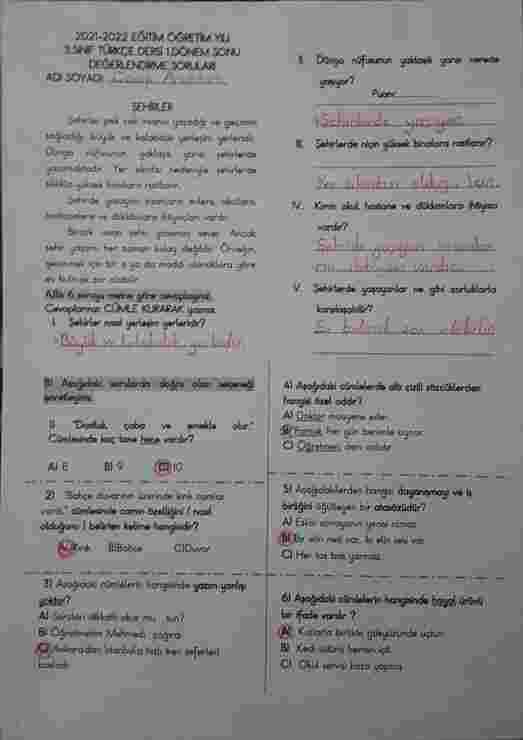 2021-2022 EĞİTİM ÖĞRETİM YILI
3.SINIF TÜRKÇE DERSİ 1.DÖNEM SONU
DEĞERLENDİRME SORULARI
ADI SOYADI:
ŞEHİRLER
Şehirler pek çok insanın yaşadığı ve geçimini
sağladığı büyük ve kalabalık yerleşim yerleridir.
Dünya nüfusunun yaklaşık yarısı şehirlerde
yaşamaktadır. Yer sıkıntısı nedeniyle şehirlerde
sıklıkla yüksek binalara rastlanır.
Şehirde yaşayan insanların evlere, okullara,
hastanelere ve dükkânlara ihtiyaçları vardır.
Birçok insan şehir yaşamını sever. Ancak
şehir yaşamı her zaman kolay değildir. Örneğin,
geçinmek için bir iş ya da maddi olanaklara göre
ev bulmak zor olabilir.
A)İlk 5 soruyu metne göre cevaplayınız.
Cevaplarınızı CÜMLE KURARAK yazınız.
I. Şehirler nasıl yerleşim yerleridir?
Büyük ve kalabalık
II. Dünya nüfusunun yaklaşık yarısı nerede
yaşıyor?
Puanı:
Şehirlerde yaşıyor
III. Şehirlerde niçin yüksek binalara rastlanır?
Yer sıkıntısı olduğu için
IV. Kimin okul, hastane ve dükkânlara ihtiyacı
vardır?
Şehirde yaşayan insanların
ihtiyacı vardır.
V. Şehirlerde yaşayanlar ne gibi zorluklarla
karşılaşabilir?
Ev bulmak zor olabilir
B) Aşağıdaki sorularda doğru olan seçeneği
işaretleyiniz.
1) "Dostluk, çaba ve emekle olur."
Cümlesinde kaç tane hece vardır?
A) 8 B) 9 C) 10
2) "Bahçe duvarının üzerinde kırık camlar
vardı." cümlesinde camın özelliğini ( nasıl
olduğunu ) belirten kelime hangisidir?
A)Kırık B)Bahçe C)Duvar
3) Aşağıdaki cümlelerin hangisinde yazım yanlışı
yoktur?
A) Soruları dikkatli okur mu sun?
B) Öğretmenim Mehmedi çağırdı.
C) Ankara'dan İstanbul'a hızlı tren seferleri
başladı.
4) Aşağıdaki cümlelerde altı çizili sözcüklerden
hangisi özel addır?
A) Doktor muayene eder.
B) Pamuk her gün benimle oynar.
C) Öğretmen ders anlatır.
5) Aşağıdakilerden hangisi dayanışmayı ve iş
birliğini öğütleyen bir atasözüdür?
A) Eskisi olmayanın yenisi olmaz.
B) Bir elin nesi var, iki elin sesi var.
C) Her taş baş yarmaz.
6) Aşağıdaki cümlelerin hangisinde hayal ürünü
bir ifade vardır ?
A) Kuşlarla birlikte gökyüzünde uçtum.
B) Kedi sütünü hemen içti.
C) Okul servisi kaza yapmış.